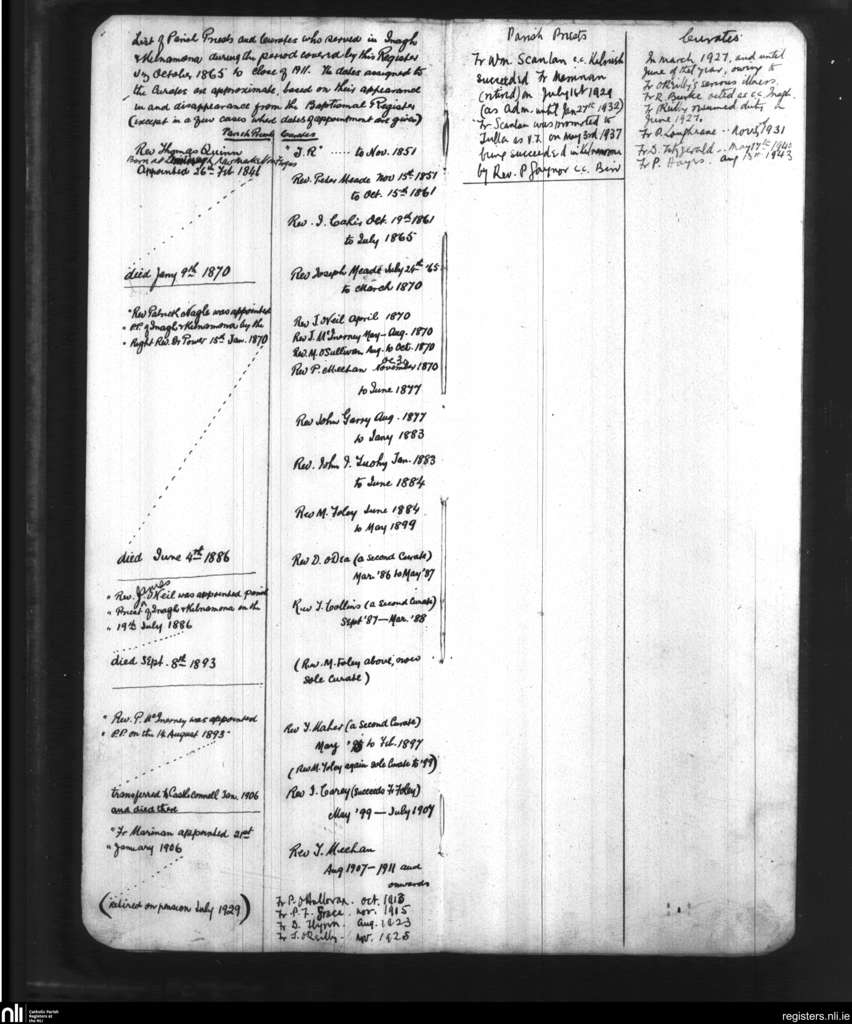 List of Parish Priests and Curates who served in Inagh
& Kilnamona during the period covered by this Register
October 1865 to close of 1911. The dates assigned to
the Curates are approximate, based on their appearance
in and disappearance from the Baptismal Register
(except in a few cases where dates of appointment are given)
Parish Priests Curates
Rev Thomas Quinn
Born at Newmarket on Fergus
Appointed 26th Feb 1846
died Jany 9th 1870
"Rev Patrick Nagle was appointed
" P.P. of Inagh & Kilnamona by the
" Right Rev. Dr Power 15th Jan. 1870
died June 4th 1886
" Rev. James O'Neil was appointed parish
" Priest of Inagh & Kilnamona on the
" 19th July 1886
died Sept. 8th 1893
" Rev. P. McInerney was appointed
" P.P. on the 14 August 1893"
transferred to Castleconnell Jan. 1906
and died there
"Fr Marinan appointed 21st
" January 1906
(retired on pension July 1929)
" J.R" ..... to Nov. 1851
Rev. Peter Meade Nov 15th 1851
to Oct. 15th 1861
Rev. J. Cahir Oct. 19th 1861
to July 1865
Rev Joseph Meade July 24th '65
to March 1870
Rev J. O'Neil April 1870
Rev J. McInerney May - Aug. 1870
Rev. M. O'Sullivan Aug. to Oct. 1870
Oc. 30
Rev P. Meehan November 1870
to June 1877
Rev John Garry Aug. 1877
to Jany 1883
Rev. John J. Tuohy Jan. 1883
to June 1884
Rev M. Foley June 1884
to May 1899
Rev D. O'Dea (a second Curate)
Mar. '86 to May '87
Rev T. Collins (a second Curate)
Sept '87 — Mar. '88
(Rev. M. Foley above, now
sole Curate)
Rev J. Maher (a second Curate)
May to Feb. 1897
(Rev M. Foley again sole Curate to '99)
Rev J. Carey (succeeds Fr Foley)
May '99 — July 1907
Rev T. Meehan
Aug 1907 — 1911 and
onwards
Fr P. O'Halloran. Oct. 1913
Fr P. J. Grace. Nov. 1915
Fr D. Flynn. Aug. 1923
Fr J. O'Reilly - Nov. 1925
Parish Priests
Fr Wm Scanlan c.c. Kilrush
succeeded Fr Marinan
(retired) on July 1st 1929
(as Adm. until Jan 27th 1932)
Fr Scanlan was promoted to
Tulla as P.P. on May 3rd 1937
being succeeded in Kilnamona
by Rev. P Gaynor c.c. Birr
Curates
In March 1927, and until
June of that year, owing to
Fr O'Reilly's serious illness.
Fr R. Burke acted as c.c. Inagh.
Fr O'Reilly resumed duty in
June 1927.
Fr A. Loughnane .. Nov 1931
Fr D. Fitzgerald .. May 17th 1940
Fr P. Hayes. Aug 1943
nli Catholic Parish
Registers at
the NLI
registers.nli.ie